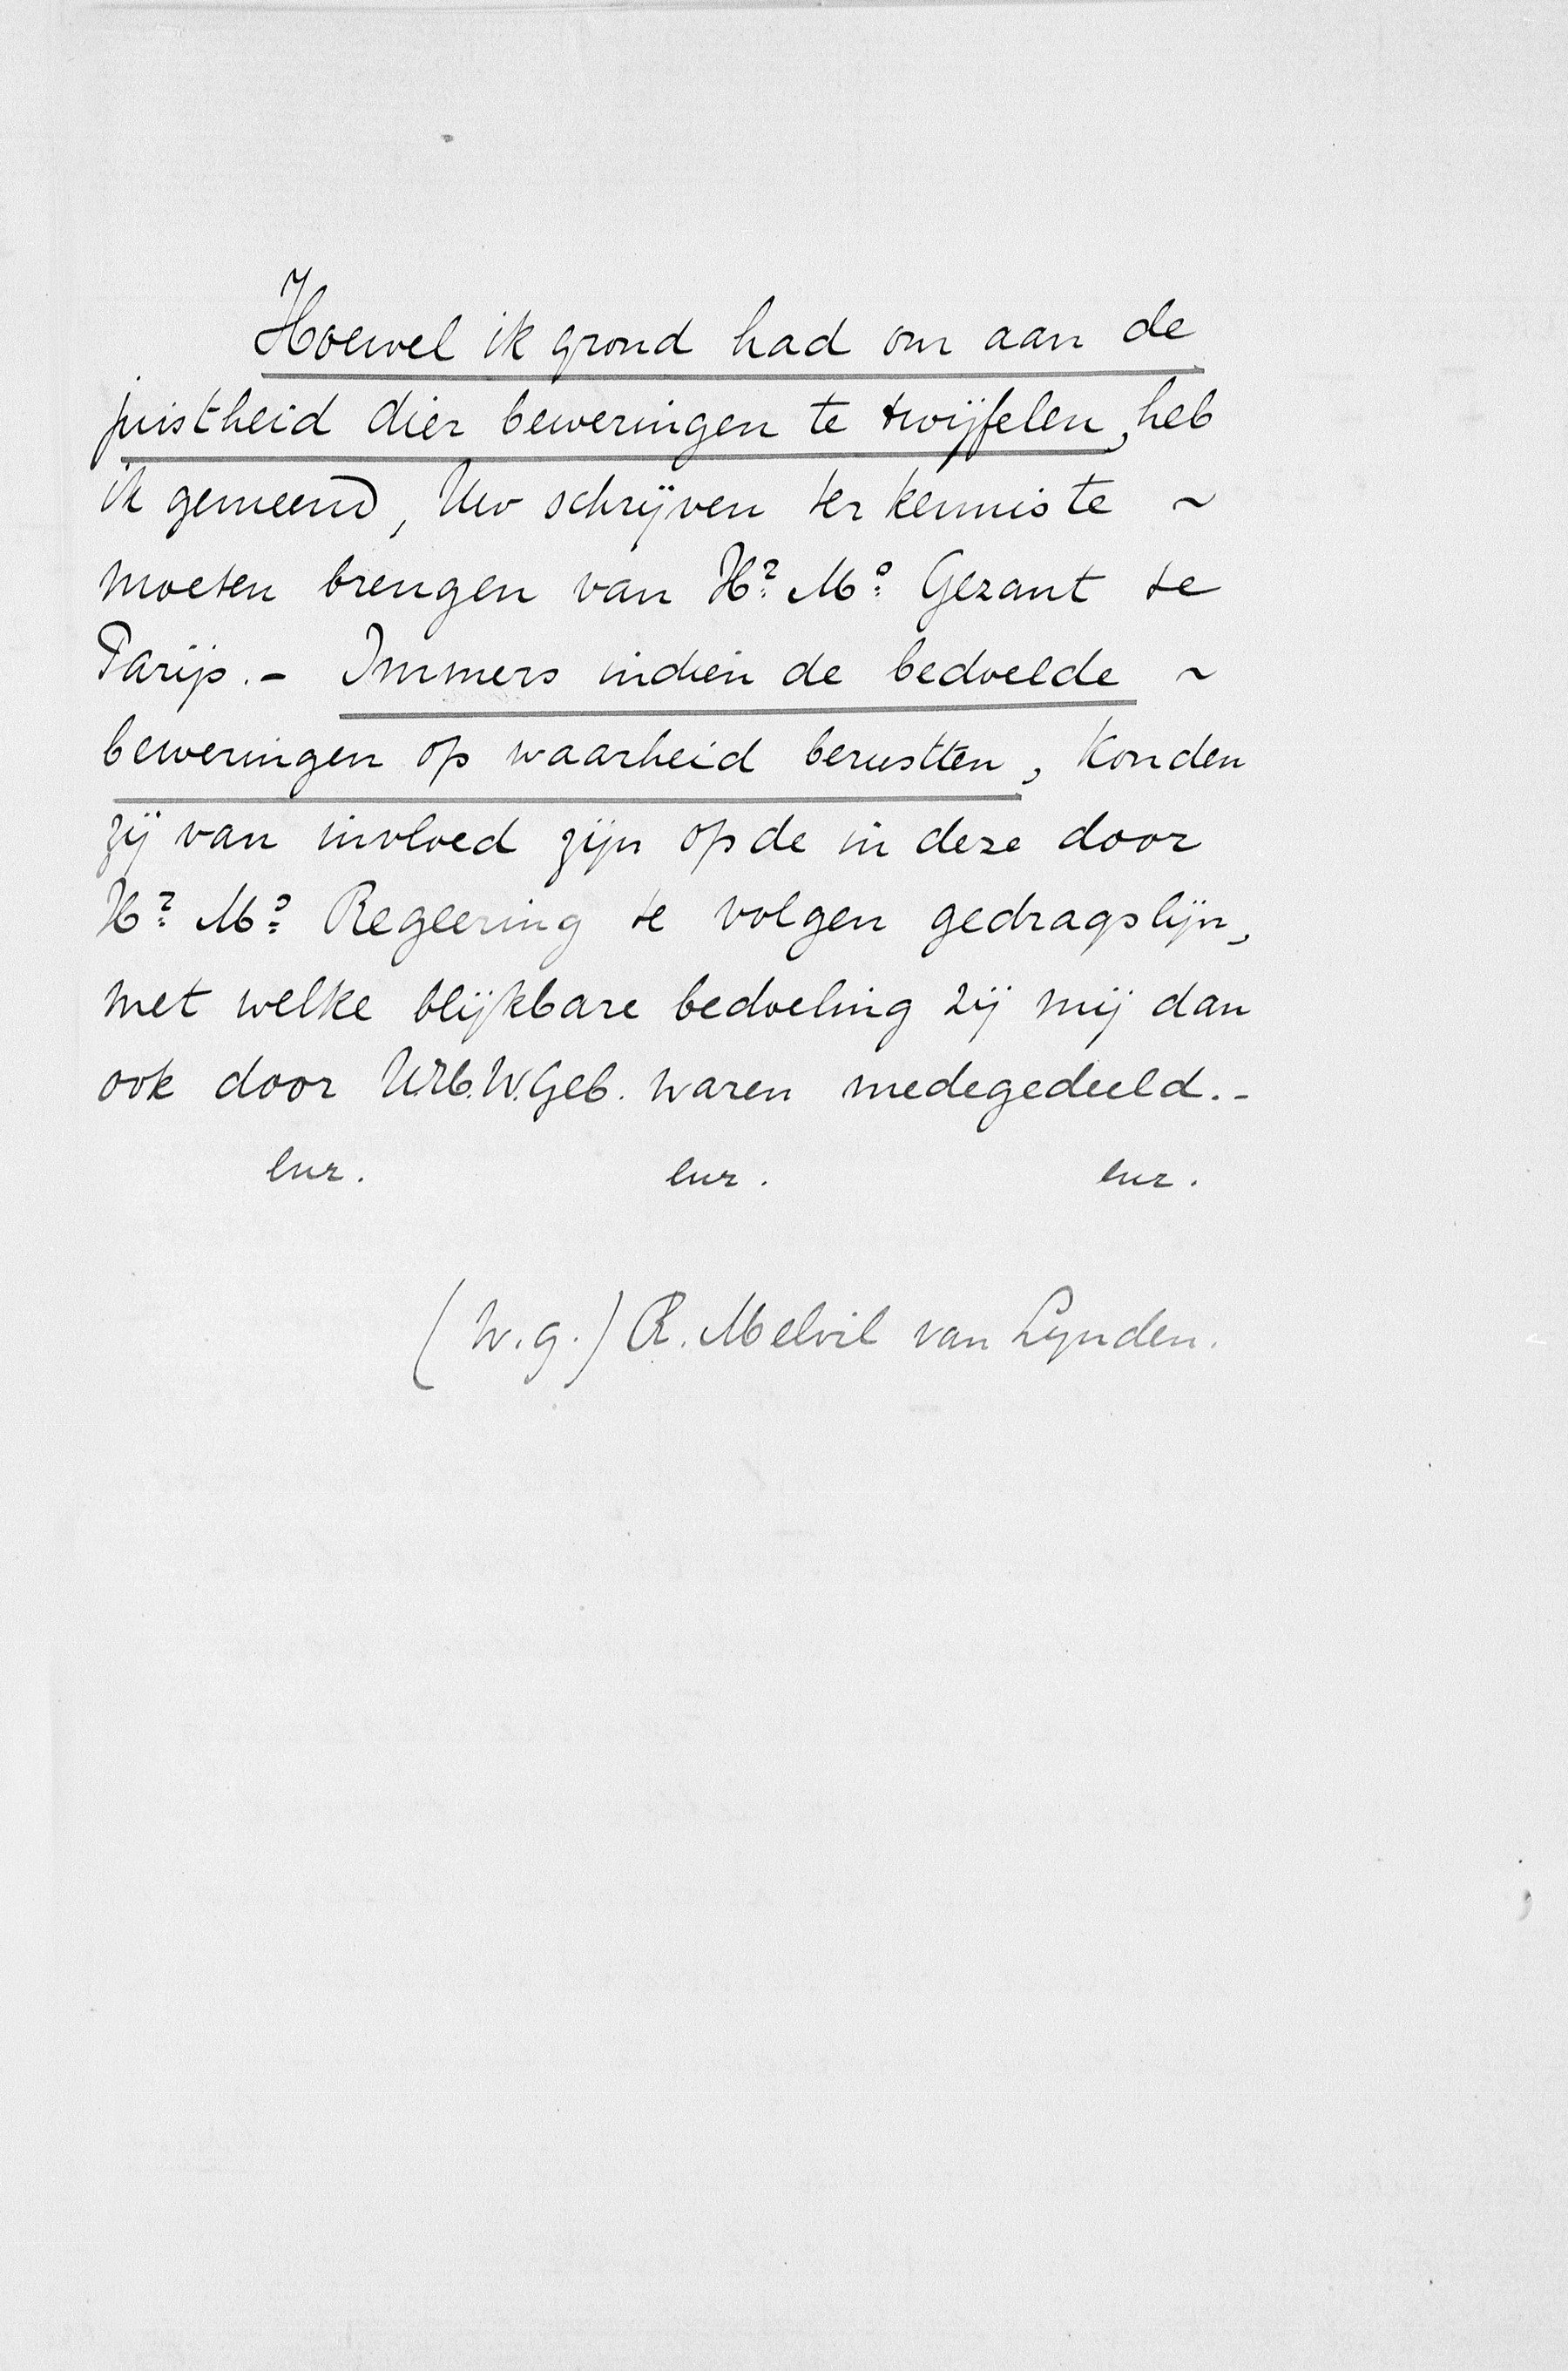 Hoewel ik grond had om aan de
juistheid dier beweringen te twijfelen, heb
ik gemeend, Uw schrijven ter kennis te ~
moeten brengen van Hr. Ms. Gezant te
Parijs. - Immers indien de bedoelde ~
beweringen op waarheid berustten, konden
zij van invloed zijn op de in deze door
Hr. Ms. Regeering te volgen gedragslijn,
met welke blijkbare bedoeling zij mij dan
ook door U.H.W.Geb. waren medegedeeld. -
enz. enz. enz.
(w.g.) R. Melvil van Lynden.